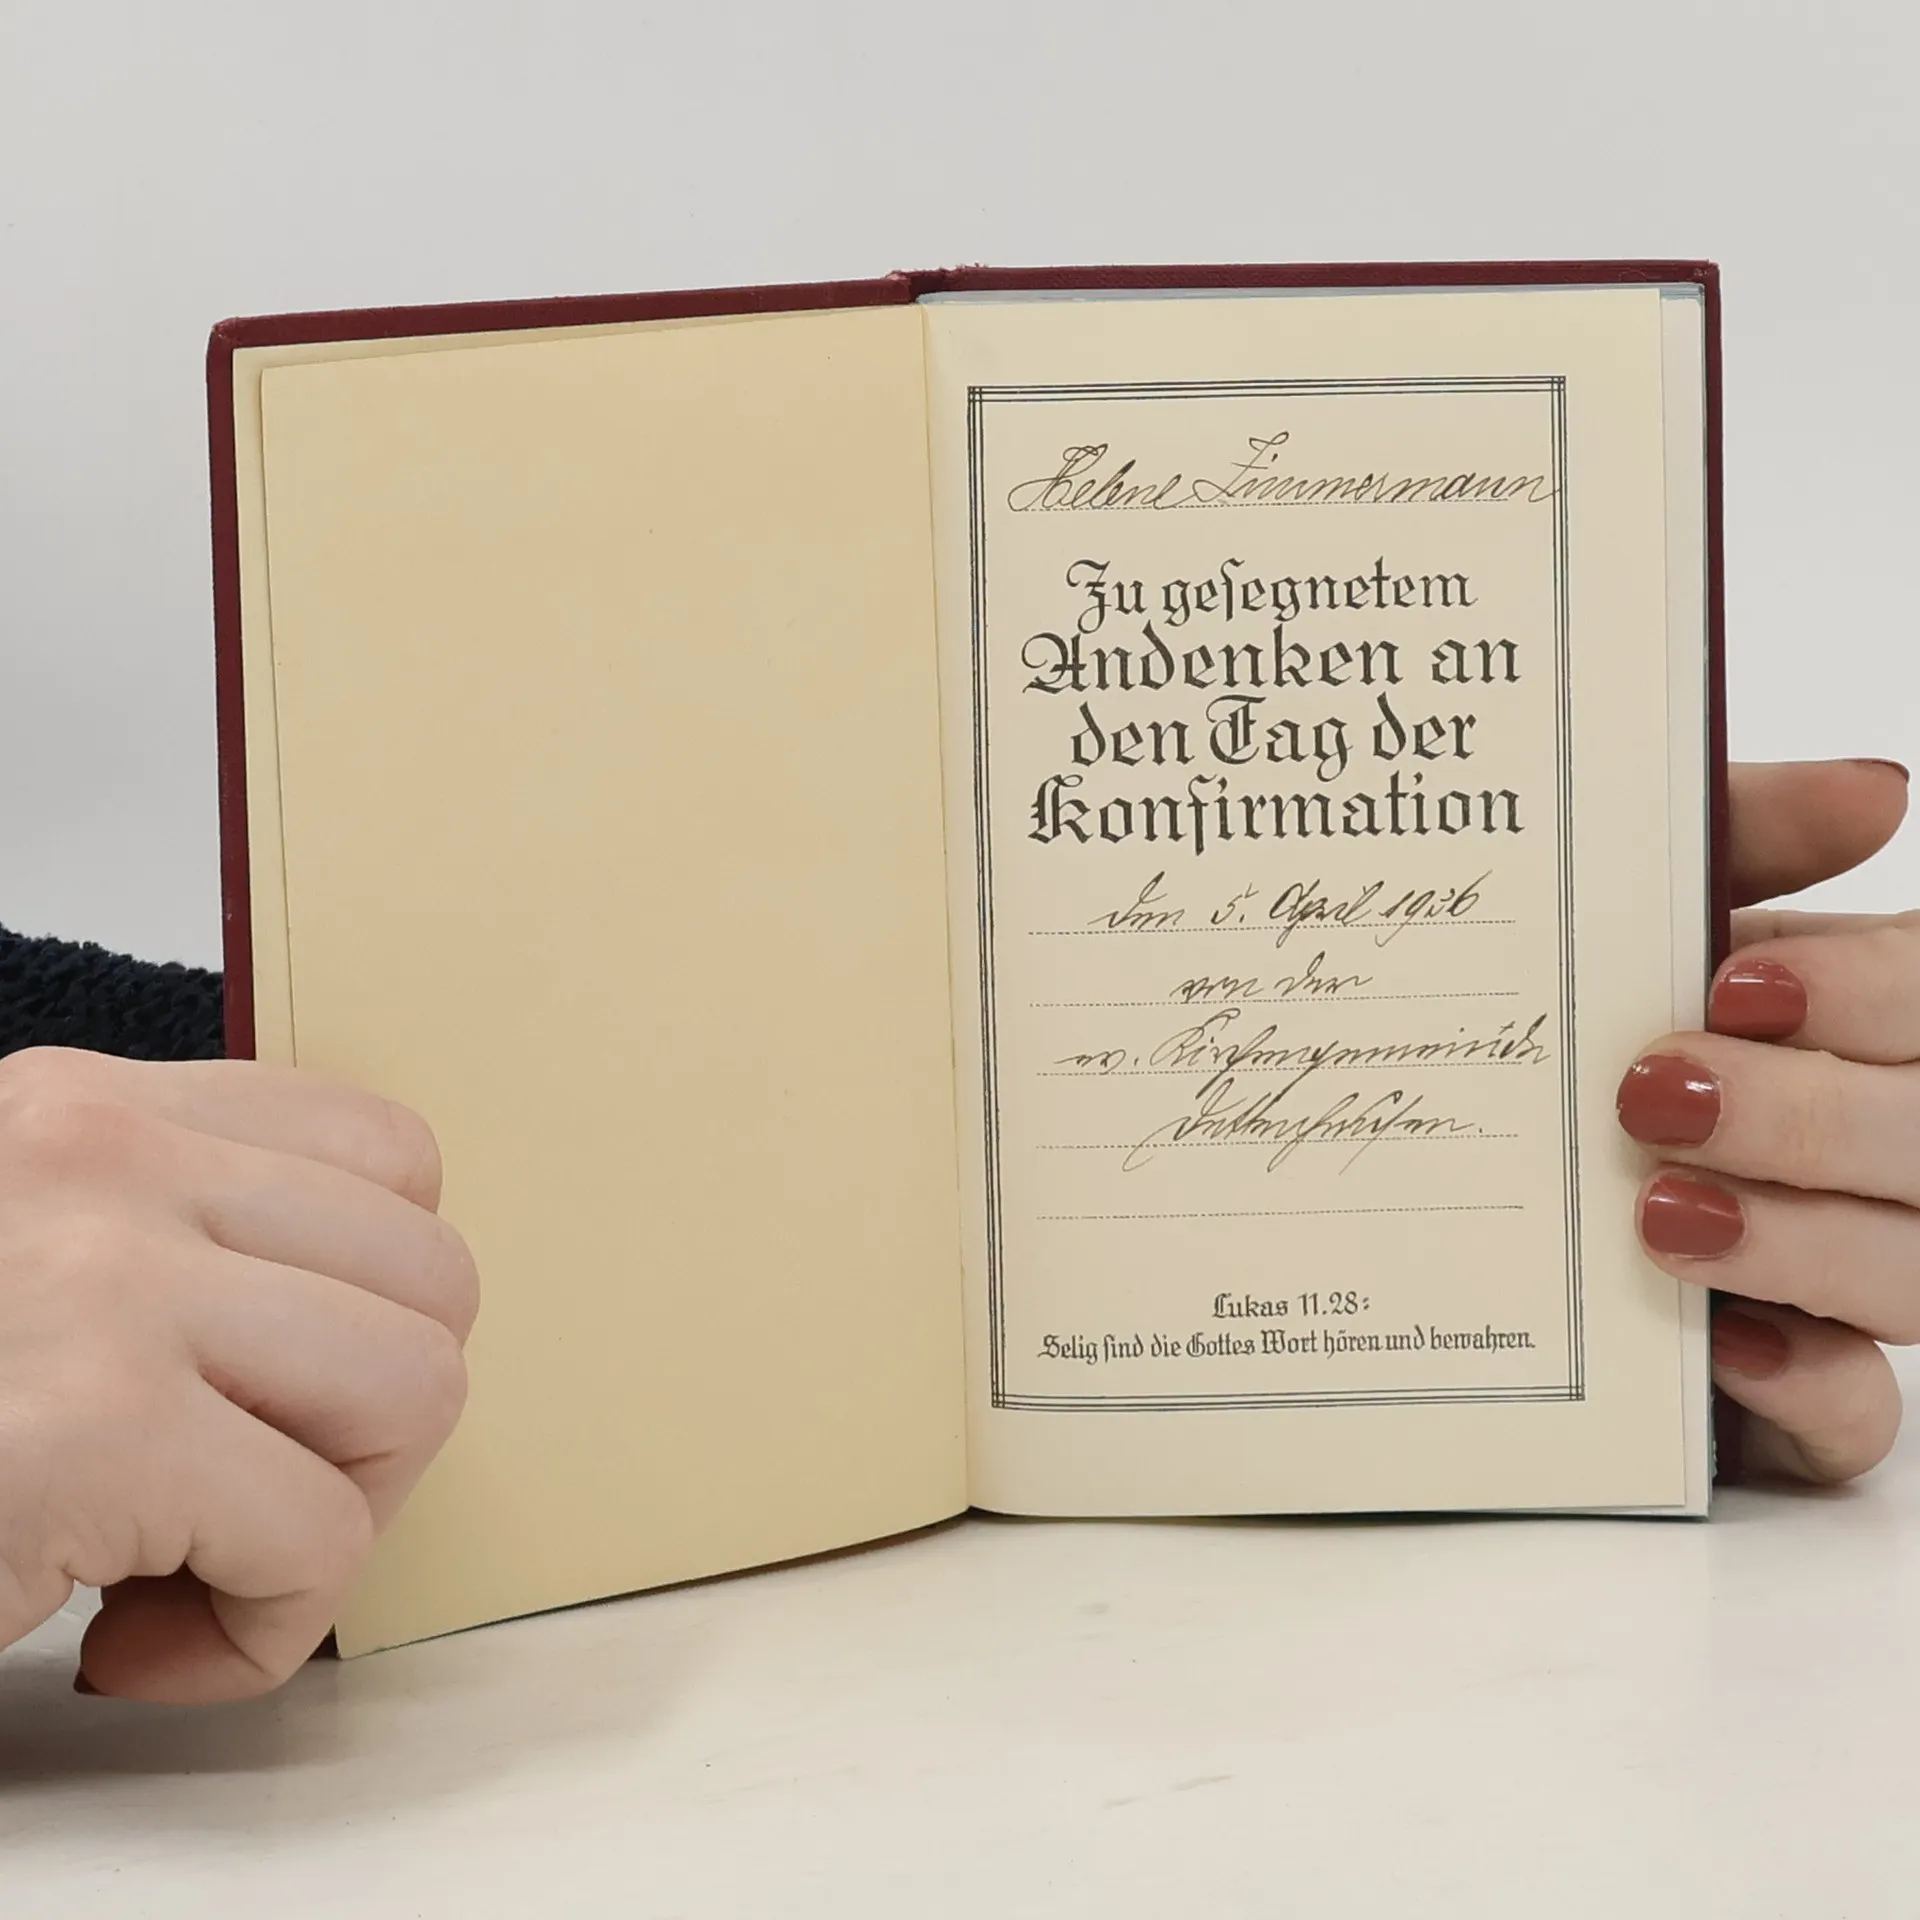 Helene Zimmermann
Zu gesegnetem
Andenken an
den Tag der
Konfirmation
den 5. April 1936
von der
ev. Kirchengemeinde
Dettenhausen.
Lukas 11.28:
Selig sind die Gottes Wort hören und bewahren.